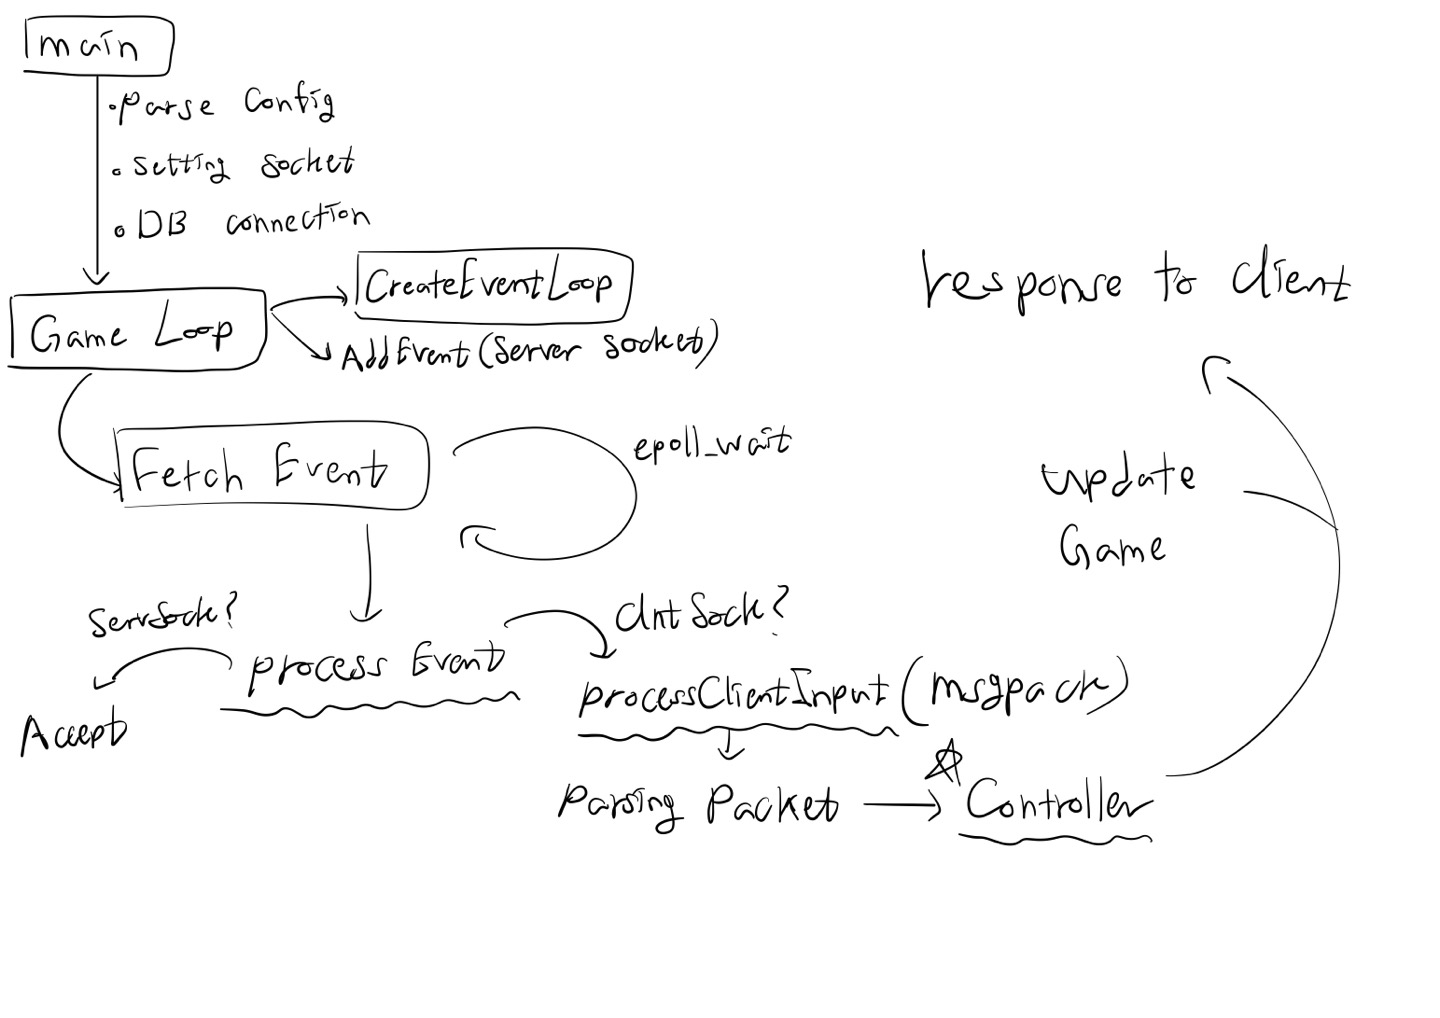 main
• Parse Config
• Setting Socket
• DB connection
Game Loop
CreateEventLoop
AddEvent (Server Socket)
Fetch Event
epoll_wait
ServSock?
process Event
ClntSock?
Accept
processClientInput (msgpack)
Parsing Packet
Controller
update
Game
response to client